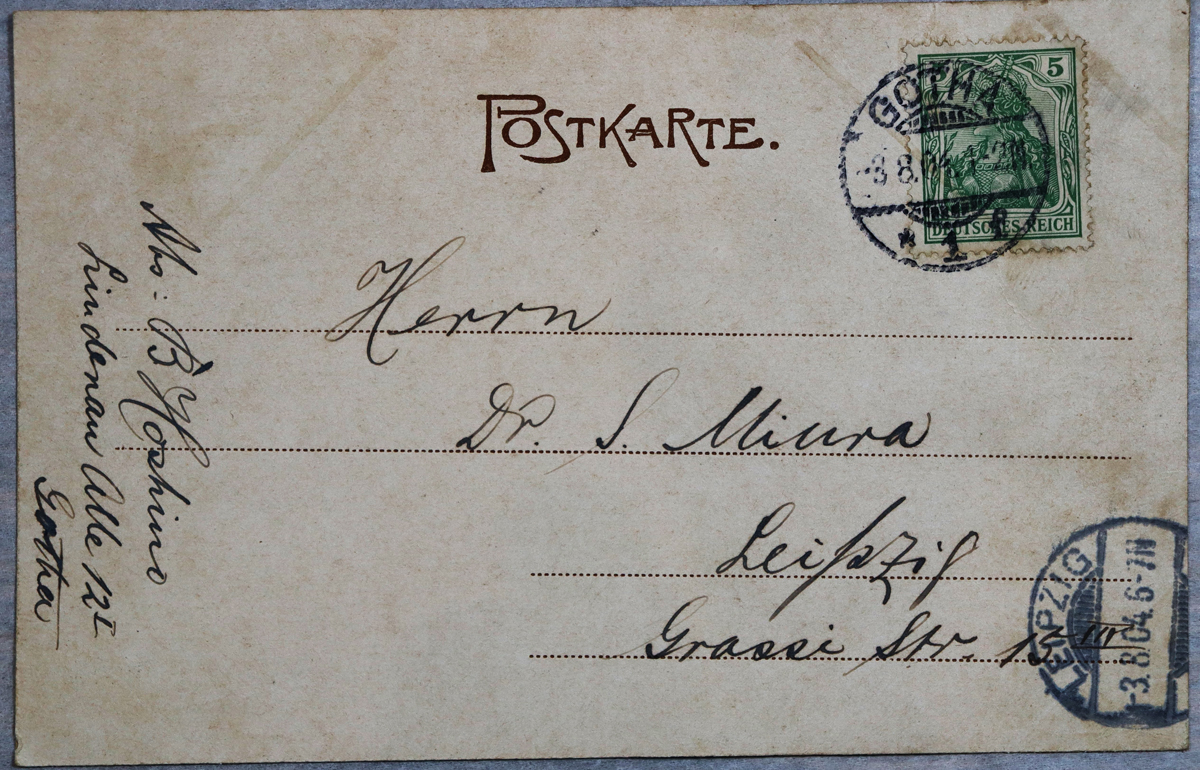 POSTKARTE.
5
DEUTSCHES REICH
GOTHA
-3.8.04.1-2N.
* 1 f
Herrn
Dr. S. Miura
Leipzig
Grassi Str. 15 III
LEIPZIG
-3.8.04.6-7N
Abs: B Hoshino
Lindenau Alle 12 I
Gotha